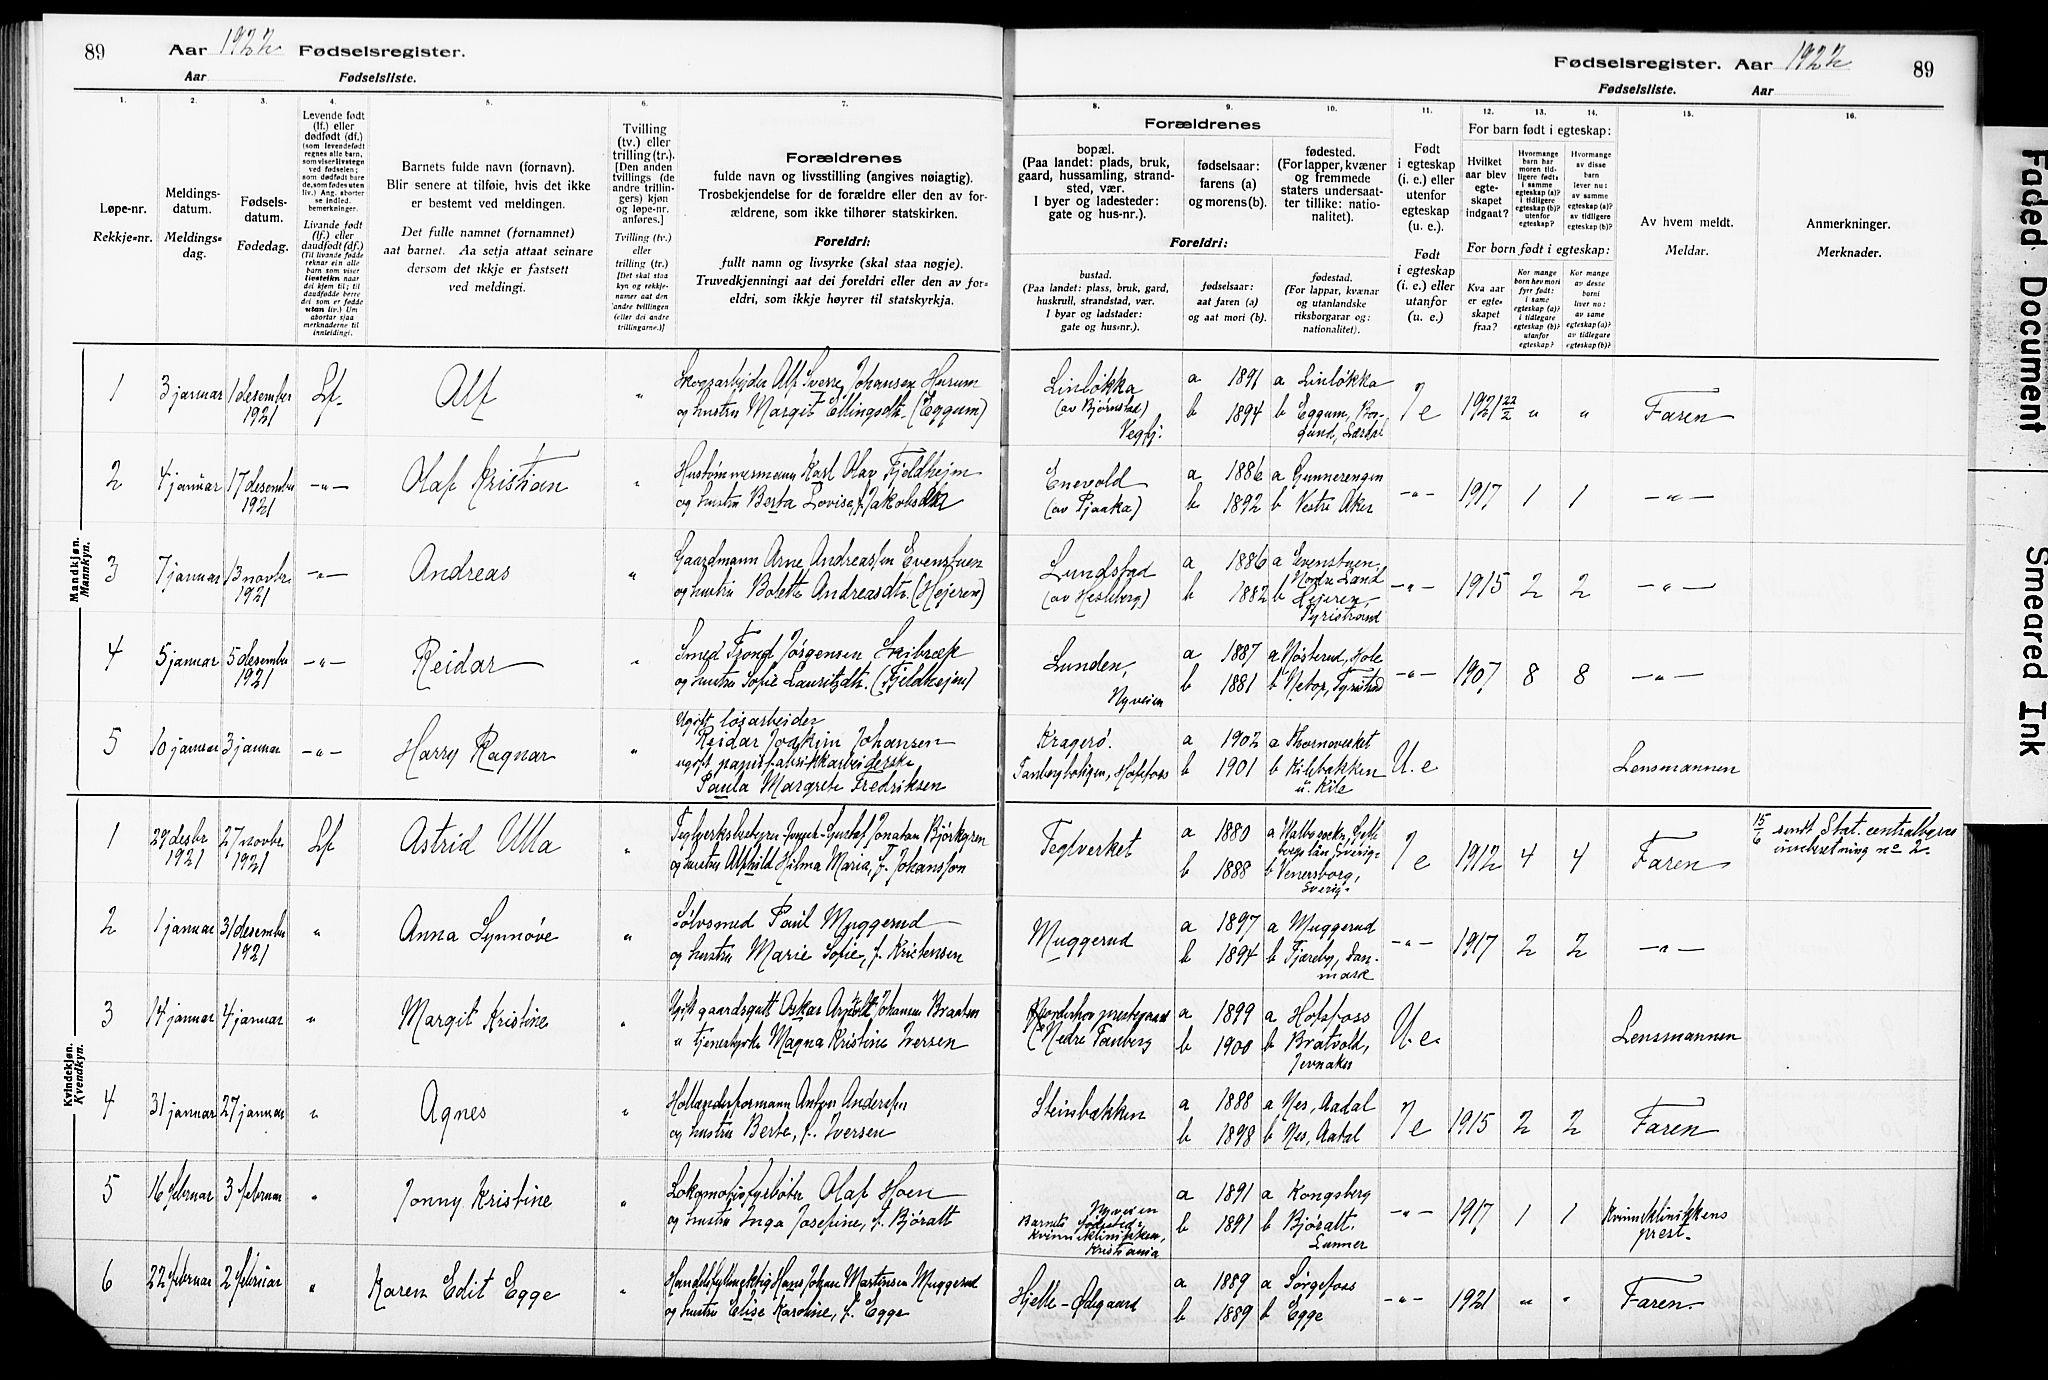 89 Aar 1922 Fødselsregister.
Aar Fødselsliste.
Fødselsregister. Aar 1922 89
Fødselsliste. Aar
1. 2. 3. 4. 5. 6. 7. 8. 9. 10. 11. 12. 13. 14. 15. 16.
Løpe-nr.
Rekkje-nr.
Meldings-
datum.
Meldings-
dag.
Fødsels-
datum.
Fødedag.
Levende født
(lf.) eller
dødfødt (df.)
Livande fødd
(lf.) eller
daudfødt (df.)
Barnets fulde navn (fornavn).
Blir senere at tilføie, hvis det ikke
er bestemt ved meldingen.
Det fulle namnet (fornamnet)
aat barnet. Aa setja attaat seinare
dersom det ikkje er fastsett
ved meldingi.
Tvilling
(tv.) eller
trilling (tr.).
[Den anden
tvillings (de
andre trillin-
gers) kjøn
og løpe-nr.
anføres.]
Tvilling (tv.)
eller
trilling (tr.)
[Det skal staa
kyn og rekkje-
numer aat den
andre tvillingen
(eller dei andre
trillingarne.)]
Forældrenes
fulde navn og livsstilling (angives nøiagtig).
Trosbekjendelse for de forældre eller den av for-
ældrene, som ikke tilhører statskirken.
Foreldri:
fullt namn og livsyrke (skal staa nøgje).
Truvedkjenningi aat dei foreldri eller den av for-
eldri, som ikkje høyrer til statskyrkja.
Forældrenes
bopæl.
(Paa landet: plads, bruk,
gaard, hussamling, strand-
sted, vær.
I byer og ladesteder:
gate og hus-nr.).
fødselsaar:
farens (a)
og morens (b).
fødested.
(For lapper, kvæner
og fremmede
staters undersaat-
ter tillike: natio-
nalitet).
Foreldri:
bustad.
(Paa landet: plass, bruk, gard,
huskrull, strandstad, vær.
I byar og ladstader:
gate og hus-nr.).
fødselsaar:
aat faren (a)
og aat mori (b).
fødestad.
(For lappar, kvænar
og utanlandske
riksborgarar og:
nationalitet).
Født
i egteskap
(i. e.) eller
utenfor
egteskap
(u. e.).
Født
i egteskap
(i. e.) eller
utanfor
(u. e.)
For barn født i egteskap:
Hvilket
aar blev
egte-
skapet
indgaat?
For born født i egteskap:
Kva aar
er egte-
skapet
fraa?
Av hvem meldt.
Meldar.
Anmerkninger.
Merknader.
Mandkjøn.
Mannkyn.
1 3 januar 1 desember 1921 Lf. Alf " Skogsarbeider Alf Sverre Johansen Hurum
og hustru Margit Ellingsdtr. (Eggum)
Linløkka (av Bjørnstad) a 1891 a Linløkka
b 1894 b Eggum, Lærdal
I e 1921 22/2 " " Faren
2 4 januar 17 desember 1921 -"- Olaf Kristian " Hustømmermann Karl Olav Fjeldheim
og hustru Berta Lovise, f. Jakobsdtr
Enevold (av Pjaaka) a 1886 a Gunnerengen
b 1892 b Vestre Aker
-"- 1917 1 1 -"-
3 7 januar 13 novbr. 1921 -"- Andreas " Gaardmann Arne Andreassen Evenstuen
og hustru Bolette Andreasdtr. (Hejeren)
Lundstad a 1886 a Evenstuen, Nordre Land
b 1882 b Hejeren, Tyristrand
-"- 1915 2 2 -"-
4 5 januar 5 desember 1921 -"- Reidar " Smed Trond Jørgensen
og hustru Sofie Lauritzdtr. (Fjeldhejen)
Lunden, Nyveien a 1887 a Høsterud, Hole
b 1881 b Tyristrand
-"- 1907 8 8 -"-
5 10 januar 3 januar -"- Harry Ragnar " Ugift løsarbeider
Reidar Joakim Johansen
ugift papirfabrikkarbeiderske,
Paula Margrete Fredriksen
Kragerø. a 1902 a
Tanbergboligen, Hofsfoss b 1901 b Kilebakken u. Kile
U. e Lensmannen
Kvindekjøn.
Kvendkyn.
1 29 desbr 1921 27 novbr. 1921 Lf Astrid Ulla " Teglverksbestyrer Gustaf Jonatan Björkgren
og hustru Alfhild Hilma Maria, f. Johansson
Teglverket a 1880 a
b 1888 b Venersborg, Sverig.
I e 1912 4 4 Faren 15/6 sendt Stat. centralbyraa
innberetning no 2.
2 1 januar 31 desember 1921 " Anna Synnøve " Sølvsmed Paul Muggerud
og hustru Marie Sofie, f. Kristensen
Muggerud a 1897 a Muggerud
b 1894 b Fjæreby, Danmark
-"- 1917 2 2 -"-
3 14 januar 4 januar " Margit Kristine " Ugift gaardsgutt Oskar Arnoldt Johansen Braaten
" tjenestepike Magna Kristine Iversen
Norderhov prestegaard a 1899 a Hofsfoss
Nedre Tanberg b 1900 b Bratvold, Jevnaker
U. e. Lensmannen
4 31 januar 27 januar " Agnes " Hollænderformann Anton Andersen
og hustru Berte, f. Iversen
Steinsbakken a 1888 a Nes, Aadal
b 1898 b Nes, Aadal
I e 1915 2 2 Faren
5 16 februar 3 februar " Jonny Kristine " Lokomotivfyrbøter Olaf Hoen
og hustru Inga Josefine, f. Bjøralt
Nyveien
Barnets fødested: Kvinneklinikken, Kristiania
a 1891 a Kongsberg
b 1891 b Bjøralt. Lunner
-"- 1917 1 1 Kvinneklinikkens prest.
6 22 februar 2 februar " Karen Edit Egge " Handelsfullmektig Hans Johan Martinsen Muggerud
og hustru Elise Karoline, f. Egge
Hjelle-Ødegaard a 1889 a Sørgefoss
b 1889 b Egge
-"- 1921 " " Faren.
Faded Document
Smeared Ink